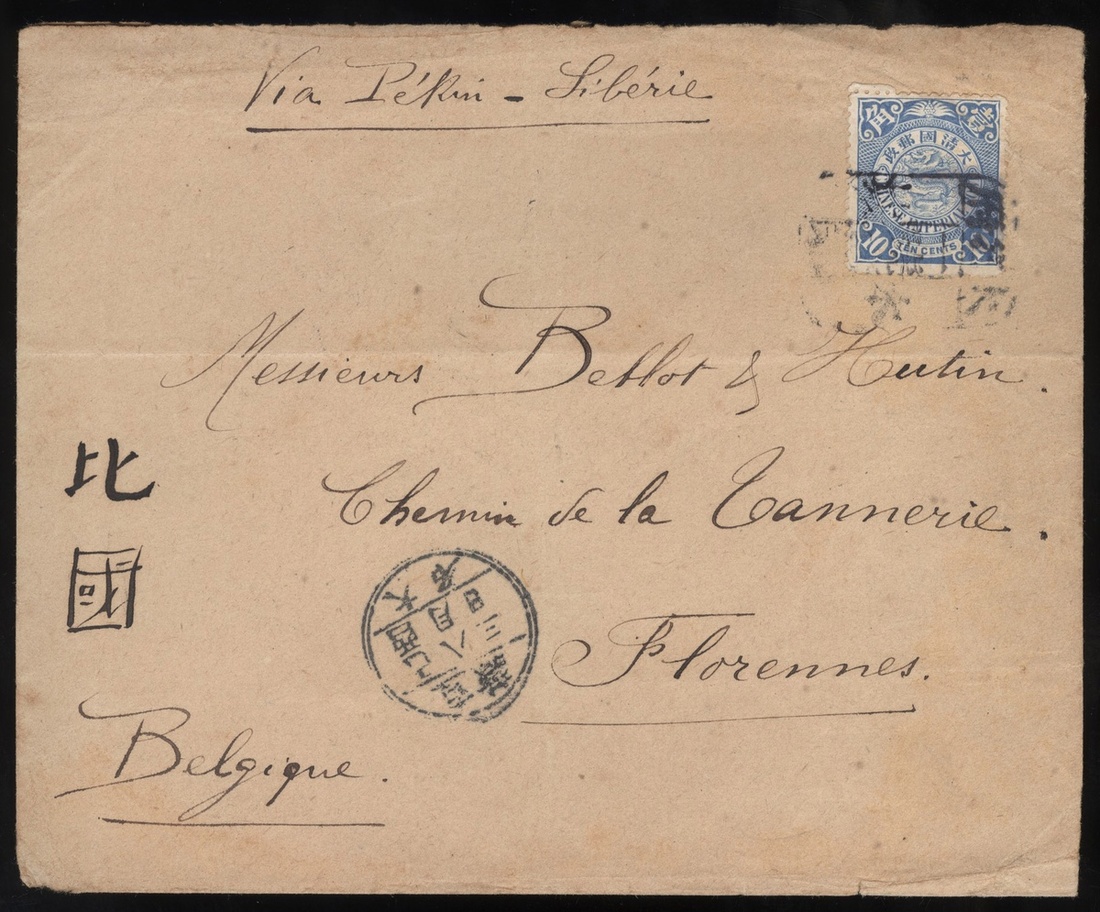 Via Pékin - Sibérie
壹角
大清國郵政
CHINESE IMPERIAL
10 TEN CENTS 10
Messieurs Bellot & Hutin.
Chemin de la Tannerie.
Florennes.
Belgique.
比國
大名
八月